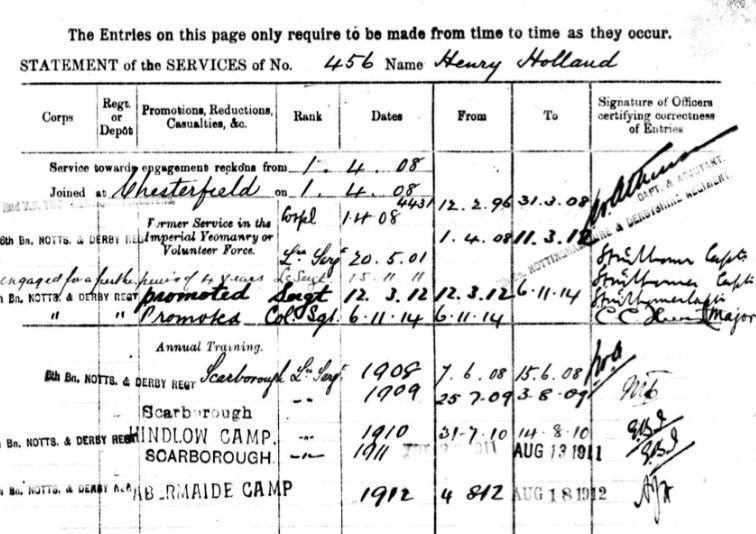 The Entries on this page only require to be made from time to time as they occur.
STATEMENT of the SERVICES of No. 456 Name Henry Holland
Corps Regt. or Depôt Promotions, Reductions, Casualties, &c. Rank Dates From To Signature of Officers certifying correctness of Entries
Service towards engagement reckons from 1. 4. 08
Joined at Chesterfield on 1. 4. 08
4431 12. 2. 96 31. 3. 08 CAPT. & ADJUTANT.
6th Bn. NOTTS. & DERBY REGT Former Service in the Imperial Yeomanry or Volunteer Force. Corpl 1.4.08 1. 4. 08 11. 3. 12 & DERBYSHIRE REGIMENT.
Lce Sergt 20. 5. 01 Capt
engaged for a further period of 4 years Lce Sergt 15. 11. 11 Capt
Bn. NOTTS. & DERBY REGT promoted Sergt 12. 3. 12 12. 3. 12 6. 11. 14 Capt
" " Promoted Col. Sgt. 6. 11. 14 6. 11. 14 Major
Annual Training.
6th Bn. NOTTS. & DERBY REGT Scarborough Lce Sergt 1908 7. 6. 08 15. 6. 08
-"- 1909 25 7.09 3. 8. 09
Scarborough
Bn. NOTTS. & DERBY REGT HINDLOW CAMP. -"- 1910 31-7.10 14-8.10
SCARBOROUGH. -"- 1911 AUG 13 1911
Bn. NOTTS. & DERBY REGT ABERMAIDE CAMP 1912 4 8 12 AUG 18 1912